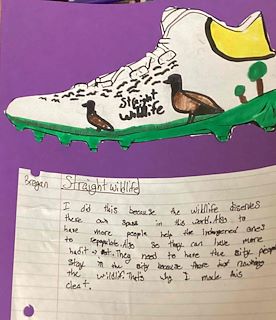 Straight
Wildlife
Straight Wildlife
I did this because the wildlife diserves
there own space in this world. Also to
have more people help the indangered ones
to repopulate. Also so they can have more
They need to have the city people
stay in the city because there just
the wildlife. Thats why I made this
cleat.